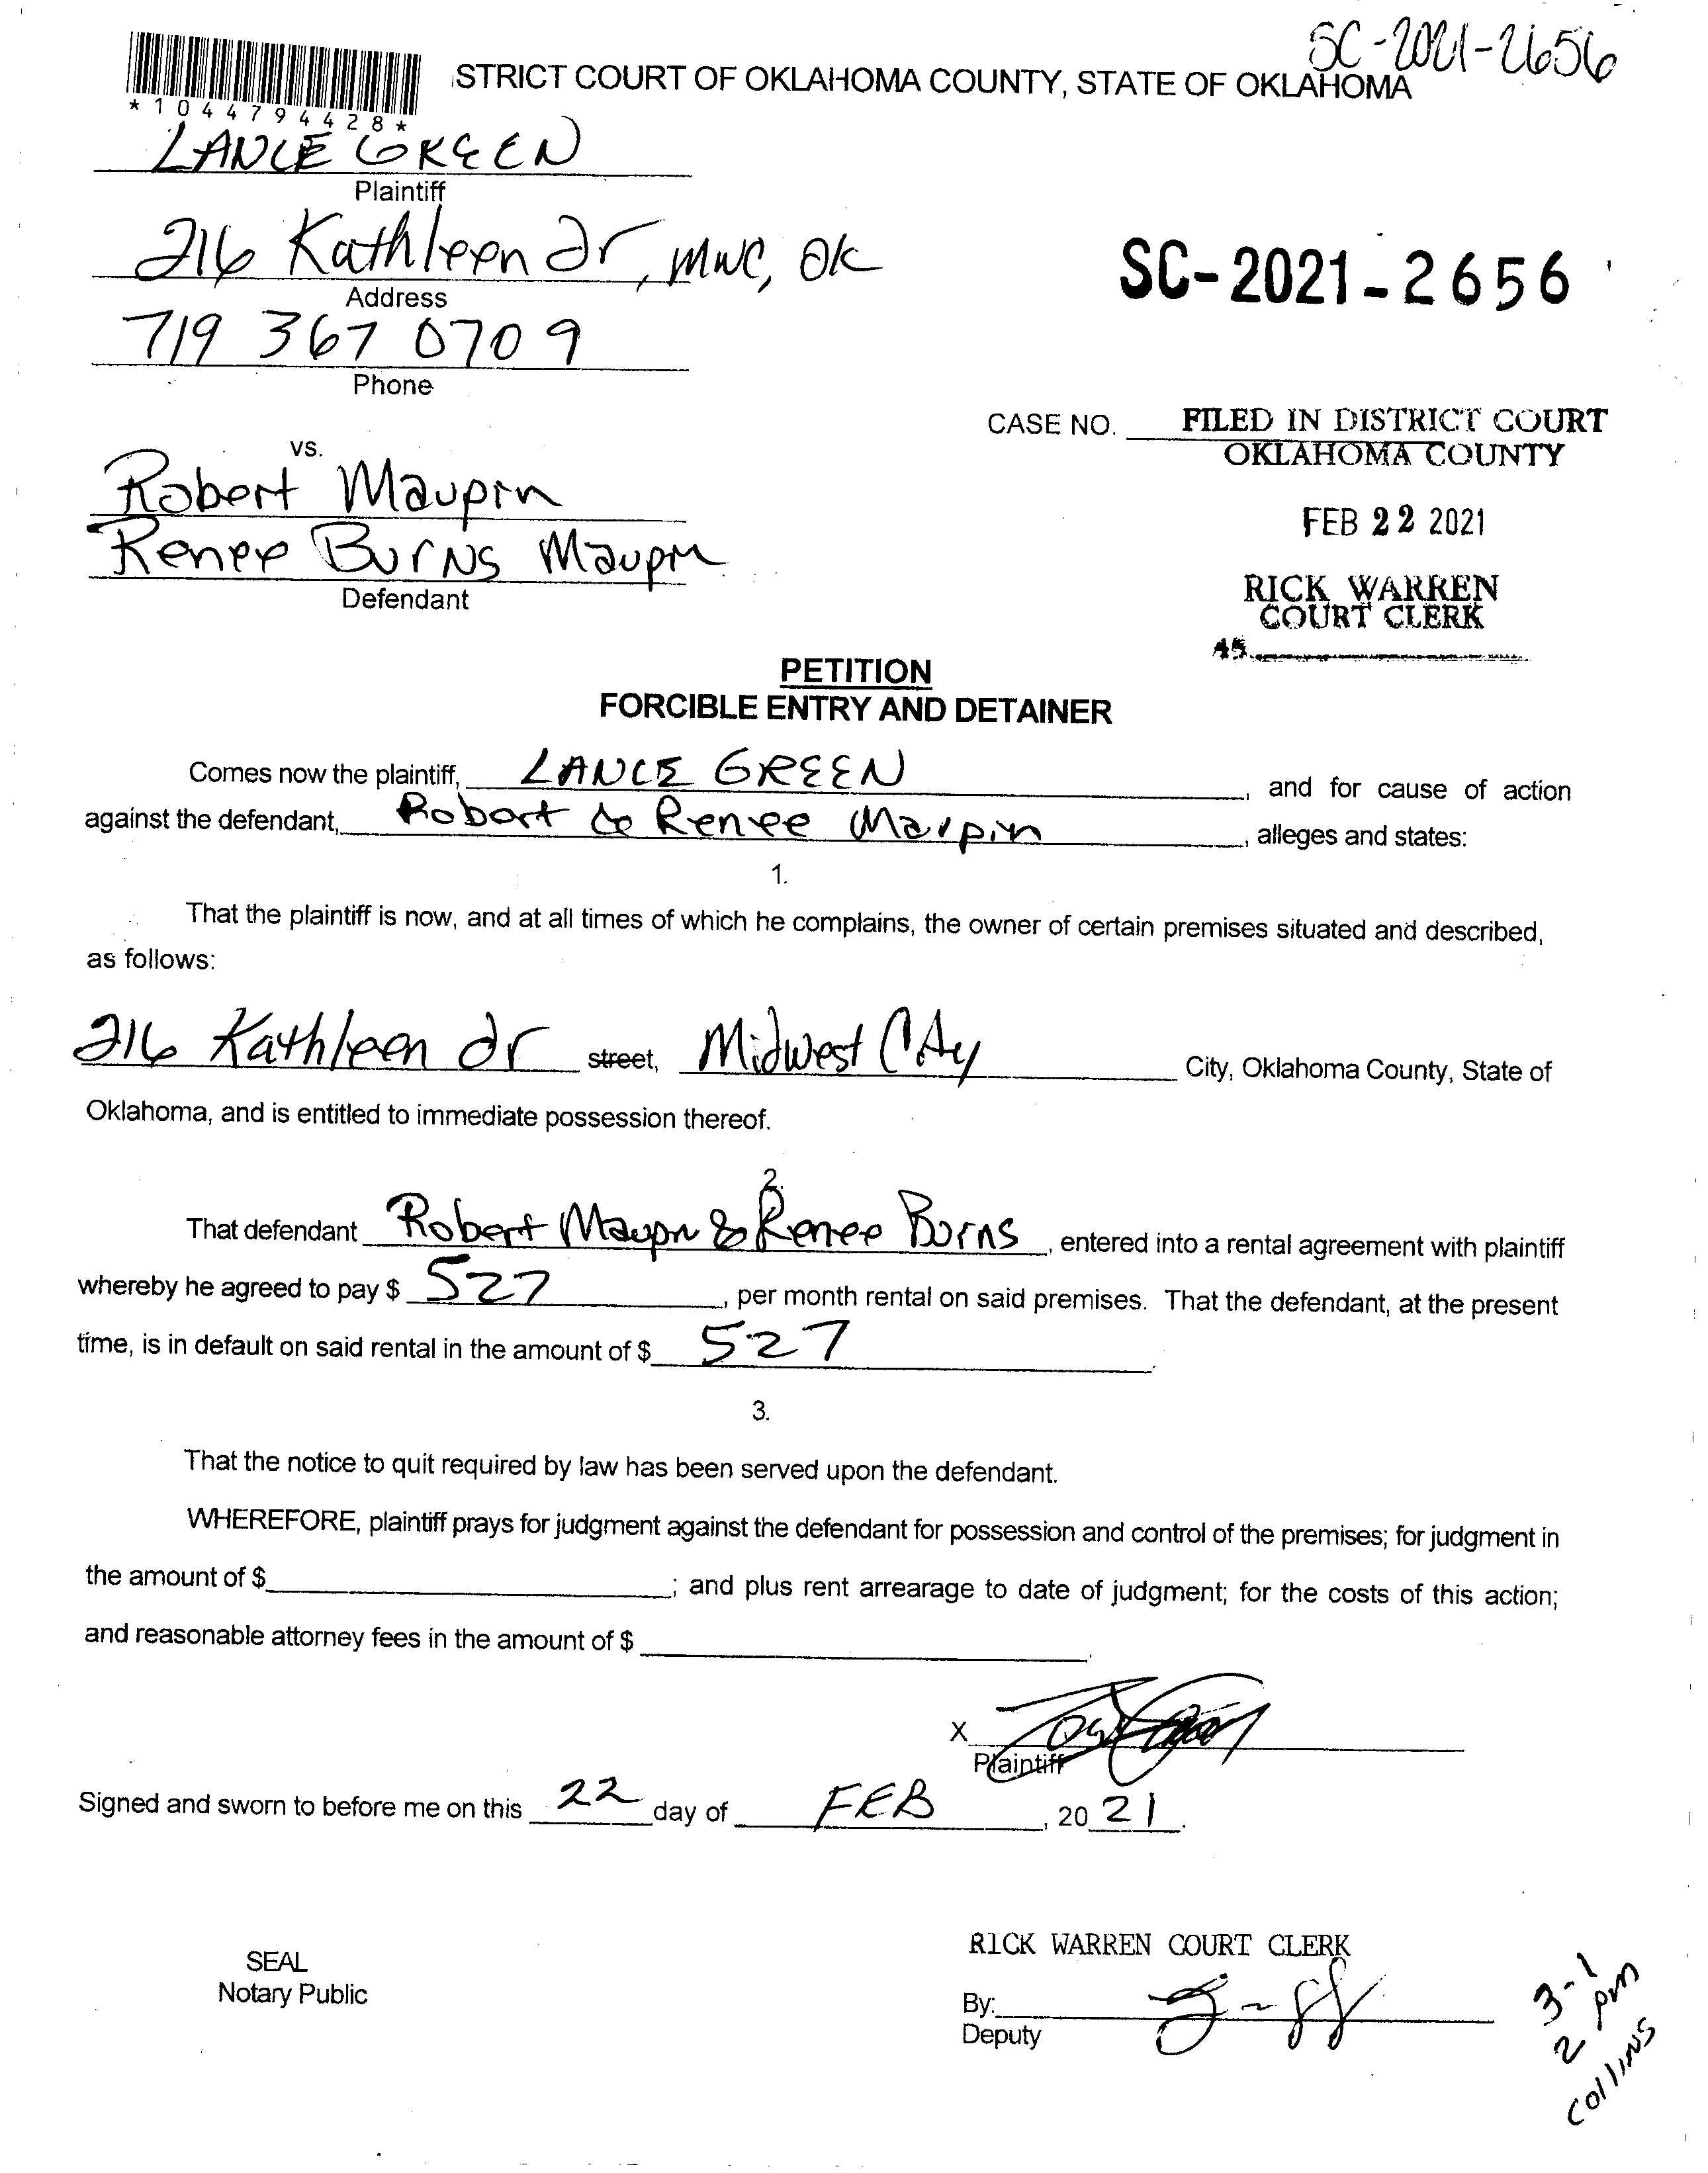 SC-2021-2656
STRICT COURT OF OKLAHOMA COUNTY, STATE OF OKLAHOMA
*1044794428*
LANCE GREEN
Plaintiff
216 Kathleen dr, MWC, OK
Address
SC-2021-2656
719 367 0709
Phone
CASE NO.
FILED IN DISTRICT COURT
OKLAHOMA COUNTY
vs.
Robert Maupin
FEB 22 2021
Renee Burns Maupin
Defendant
RICK WARREN
COURT CLERK
45
PETITION
FORCIBLE ENTRY AND DETAINER
Comes now the plaintiff, LANCE GREEN, and for cause of action
against the defendant, Robert & Renee Maupin, alleges and states:
1.
That the plaintiff is now, and at all times of which he complains, the owner of certain premises situated and described,
as follows:
216 Kathleen dr street, Midwest City City, Oklahoma County, State of
Oklahoma, and is entitled to immediate possession thereof.
2.
That defendant Robert Maupn & Renee Burns, entered into a rental agreement with plaintiff
whereby he agreed to pay $ 527, per month rental on said premises. That the defendant, at the present
time, is in default on said rental in the amount of $ 527.
3.
That the notice to quit required by law has been served upon the defendant.
WHEREFORE, plaintiff prays for judgment against the defendant for possession and control of the premises; for judgment in
the amount of $; and plus rent arrearage to date of judgment; for the costs of this action;
and reasonable attorney fees in the amount of $.
X
Plaintiff
Signed and sworn to before me on this 22 day of FEB, 2021.
RICK WARREN COURT CLERK
SEAL
Notary Public
By:
Deputy
3-1
2 pm
Collins